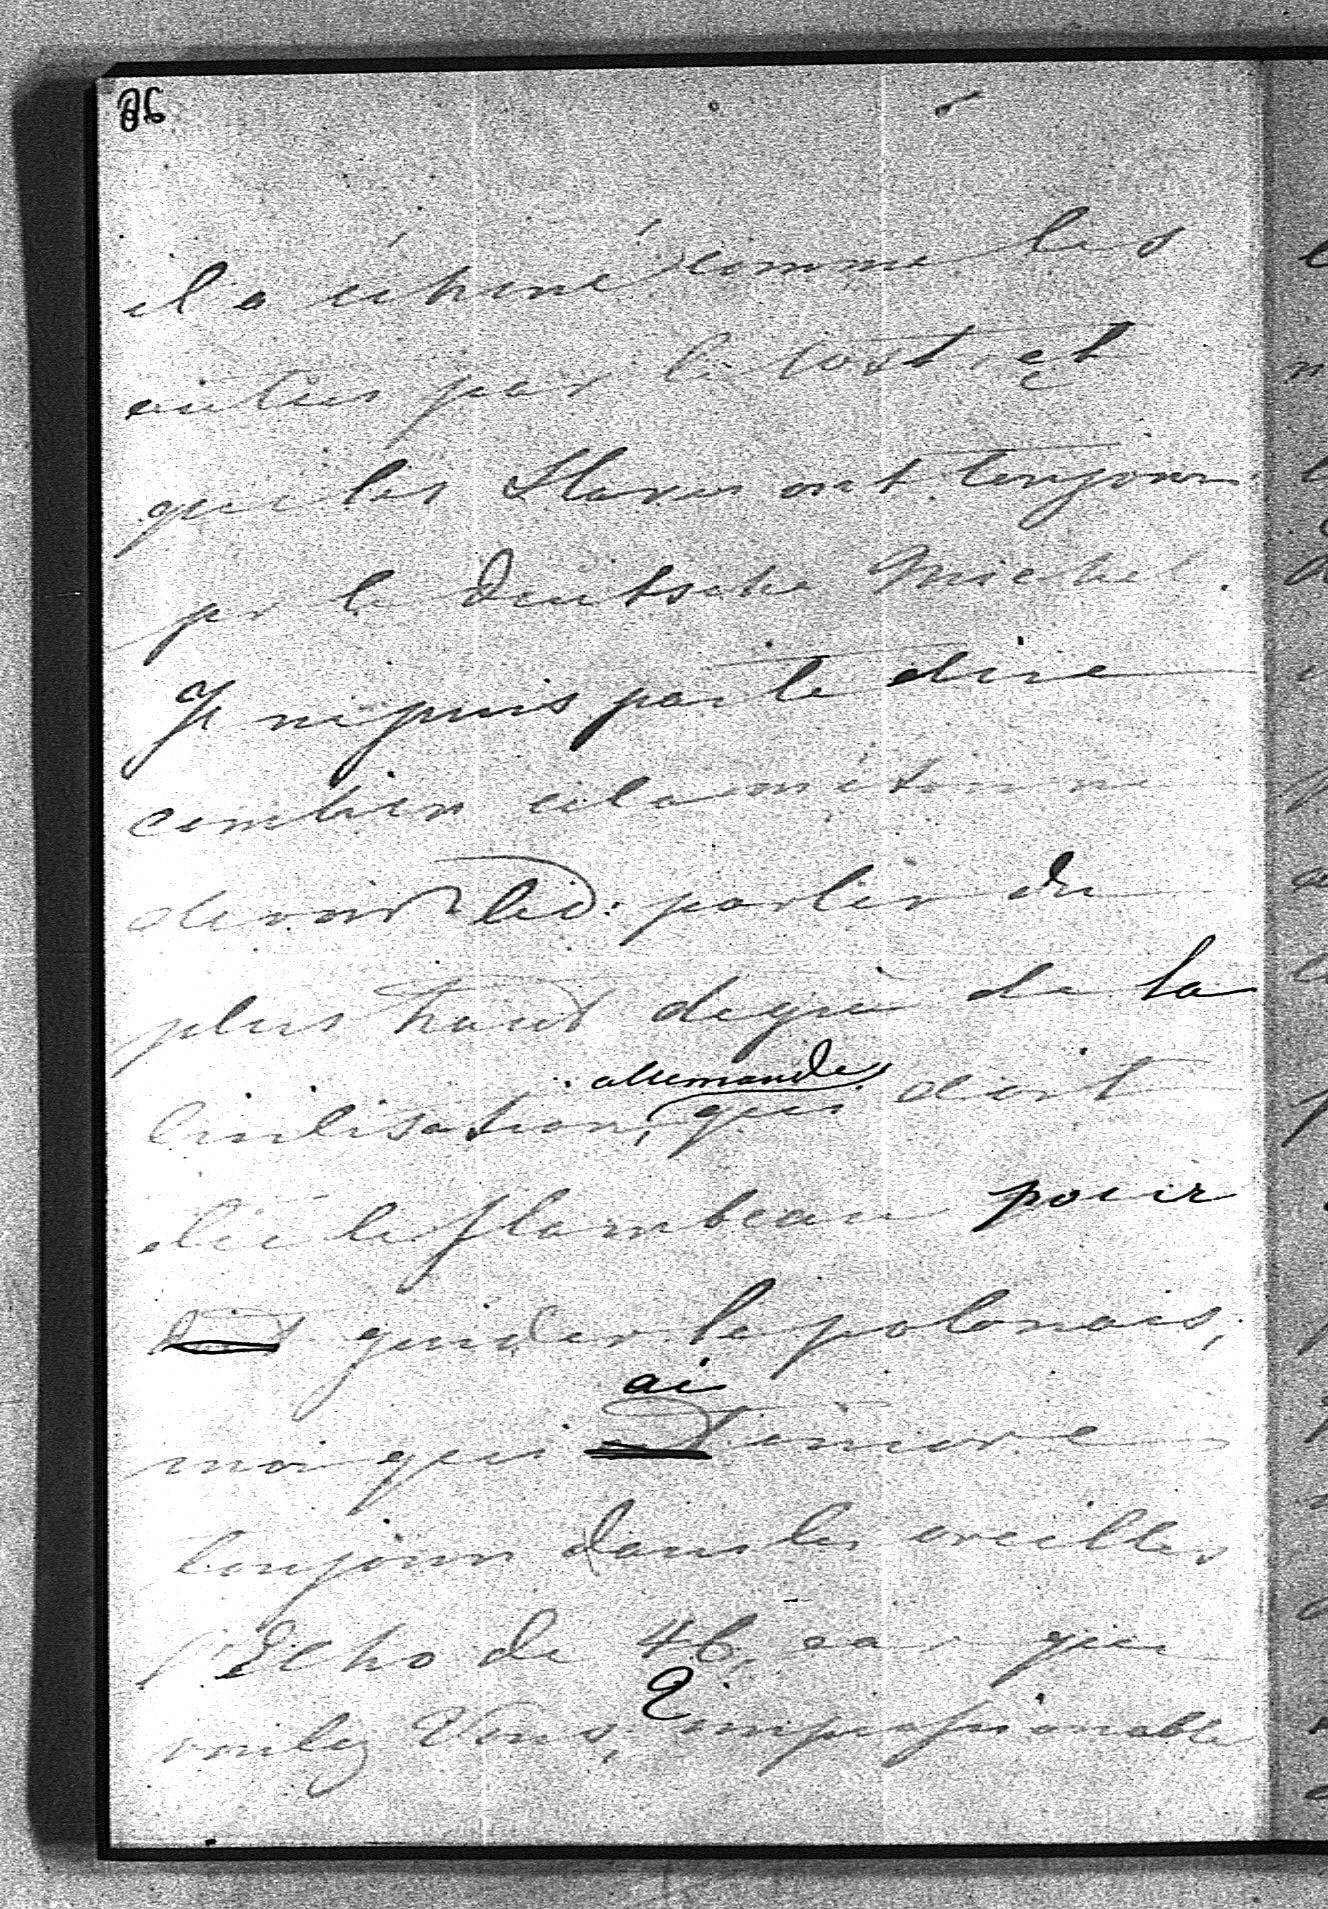 86
il a échiné comme les
autres par le
que les Slaves ont toujours
pr le deutsche Michel.
Je ne puis pas te dire
combien cela m'étonne
parler du
plus haut degré de la
Civilisation, allemande qui doit
être le flambeau pour
guider le polonais,
moi qui ai encore
toujours dans les oreilles
l'Echo de 46, car que
voulez Vous, impressionable